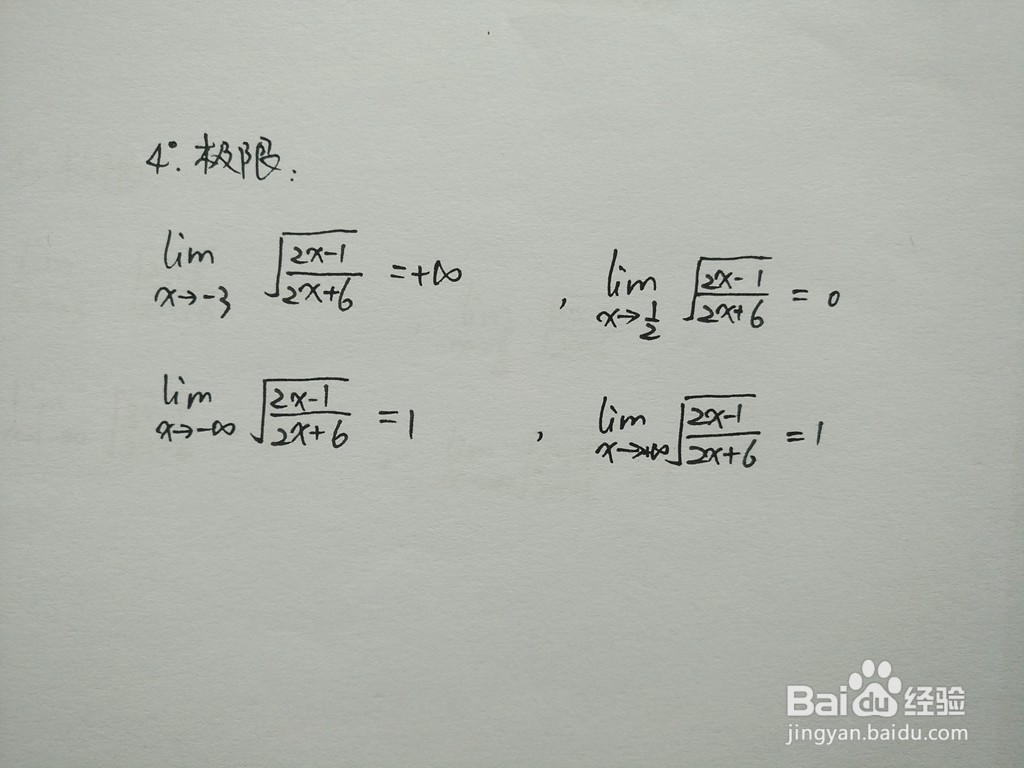 4°. 极限:
lim x→-3 √((2x-1)/(2x+6)) = +∞ , lim x→1/2 √((2x-1)/(2x+6)) = 0
lim x→-∞ √((2x-1)/(2x+6)) = 1 , lim x→+∞ √((2x-1)/(2x+6)) = 1
Baidu经验
jingyan.baidu.com